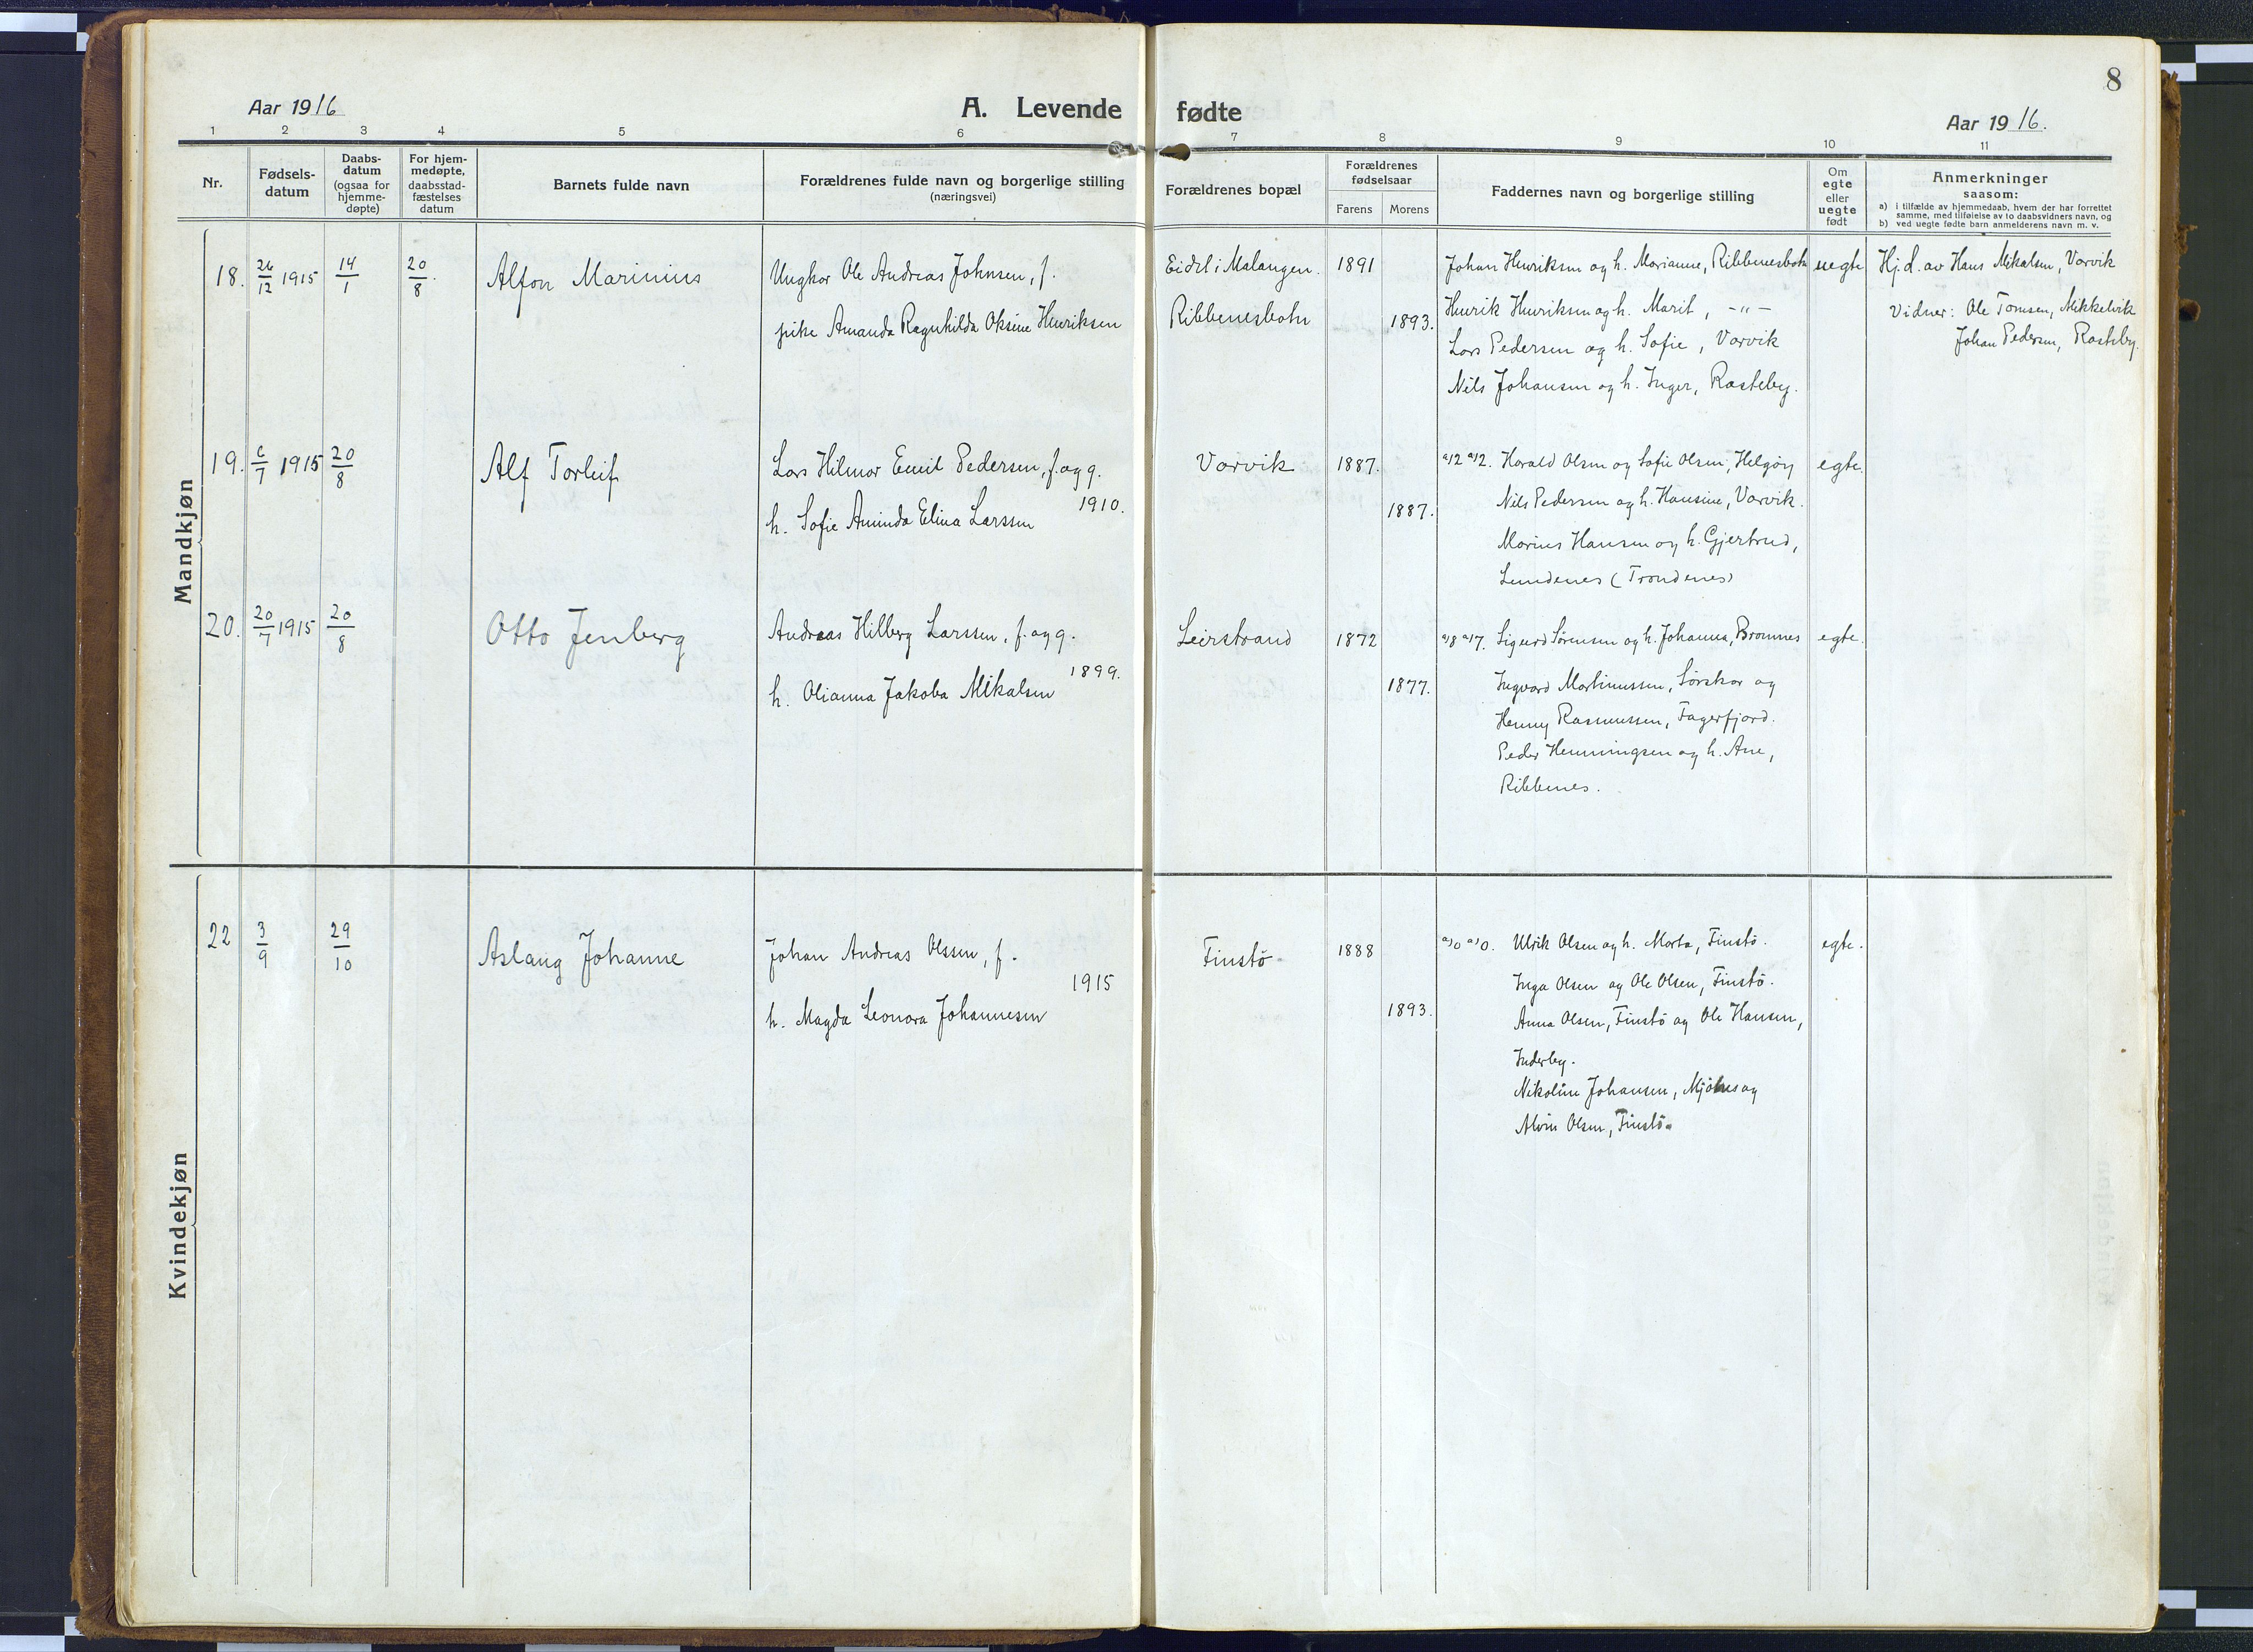 8
Aar 1916
A. Levende fødte
Aar 1916.
1 2 3 4 5 6 7 8 9 10 11
Nr.
Fødsels-
datum
Daabs-
datum
(ogsaa for
hjemme-
døpte)
For hjem-
medøpte,
daabsstad-
fæstelses
datum
Barnets fulde navn
Forældrenes fulde navn og borgerlige stilling
(næringsvei)
Forældrenes bopæl
Forældrenes
fødselsaar
Farens Morens
Faddernes navn og borgerlige stilling
Om
egte
eller
uegte
født
Anmerkninger
saasom:
a) i tilfælde av hjemmedaab, hvem der har forrettet
samme, med tilføielse av to daabsvidners navn, og
b) ved uegte fødte barn anmelderens navn m. v.
Mandkjøn
18. 26/12 1915 14/1 20/8. Alfon Marinius
Ungkar Ole Andreas Johnsen, f.
pike Amanda Ragnhilda Oksine Henriksen
Eidet i Malangen. 1891
Ribbenesbotn 1893.
Johan Henriksen og h. Marianne, Ribbenesbotn uegte
Henrik Henriksen og h. Marit, -"-
Lars Pedersen og h. Sofie, Vorvik
Nils Johansen og h. Inger, Rasteby.
Hj.d. av Hans Mikalsen, Vorvik
Vidner: Ole Tomsen, Mikkelvik
Johan Pedersen, Rasteby.
19. 6/7 1915 20/8 Alf Torleif
Lars Hilmar Emil Pedersen, f. og g.
1910.
h. Sofie Aminda Elina Larssen
Vorvik 1887.
1887.
a/2 a/2. Harald Olsen og Sofie Olsen, Helgøy egte.
Nils Pedersen og h. Hansine, Vorvik.
Marius Hansen og h. Gjertrud,
Lundenes (Trondenes)
20. 20/7 1915 20/8 Otto Jenberg
Andreas Hilberg Larssen, f. og g.
1899.
h. Olianna Jakoba Mikalsen
Leirstrand 1872
1877.
a/8 a/7. Sigurd Sørensen og h. Johanna, Bromnes egte.
Ingvard Martinussen, Sørskar og
Henny Rasmussen, Fagerfjord.
Peder Henningsen og h. Ane,
Ribbenes.
Kvindekjøn
22 3/9 29/10 Aslaug Johanne
Johan Andreas Olssen, f.
1915
h. Magda Leonora Johannesen
Finstö 1888
1893.
a/0 a/0. Ulrik Olsen og h. Marta, Finstö. egte.
Inga Olsen og Ole Olsen, Finstö.
Anna Olsen, Finstö og Ole Hansen,
Inderby.
Nikoline Johansen, Mjölnes og
Alvin Olsen, Finstö.